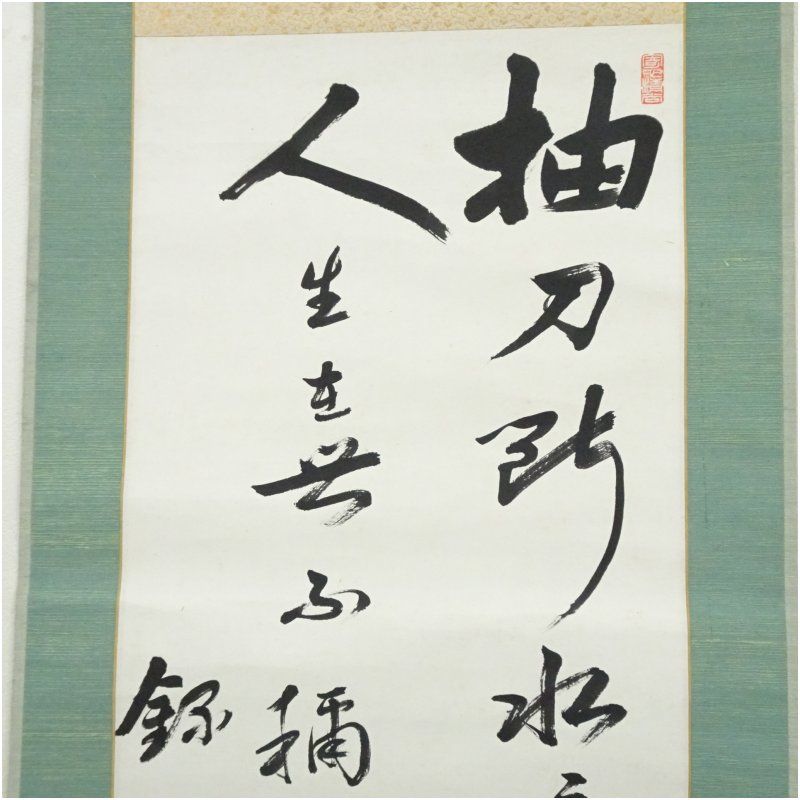 抽刀断水
人生在世不稱
錄